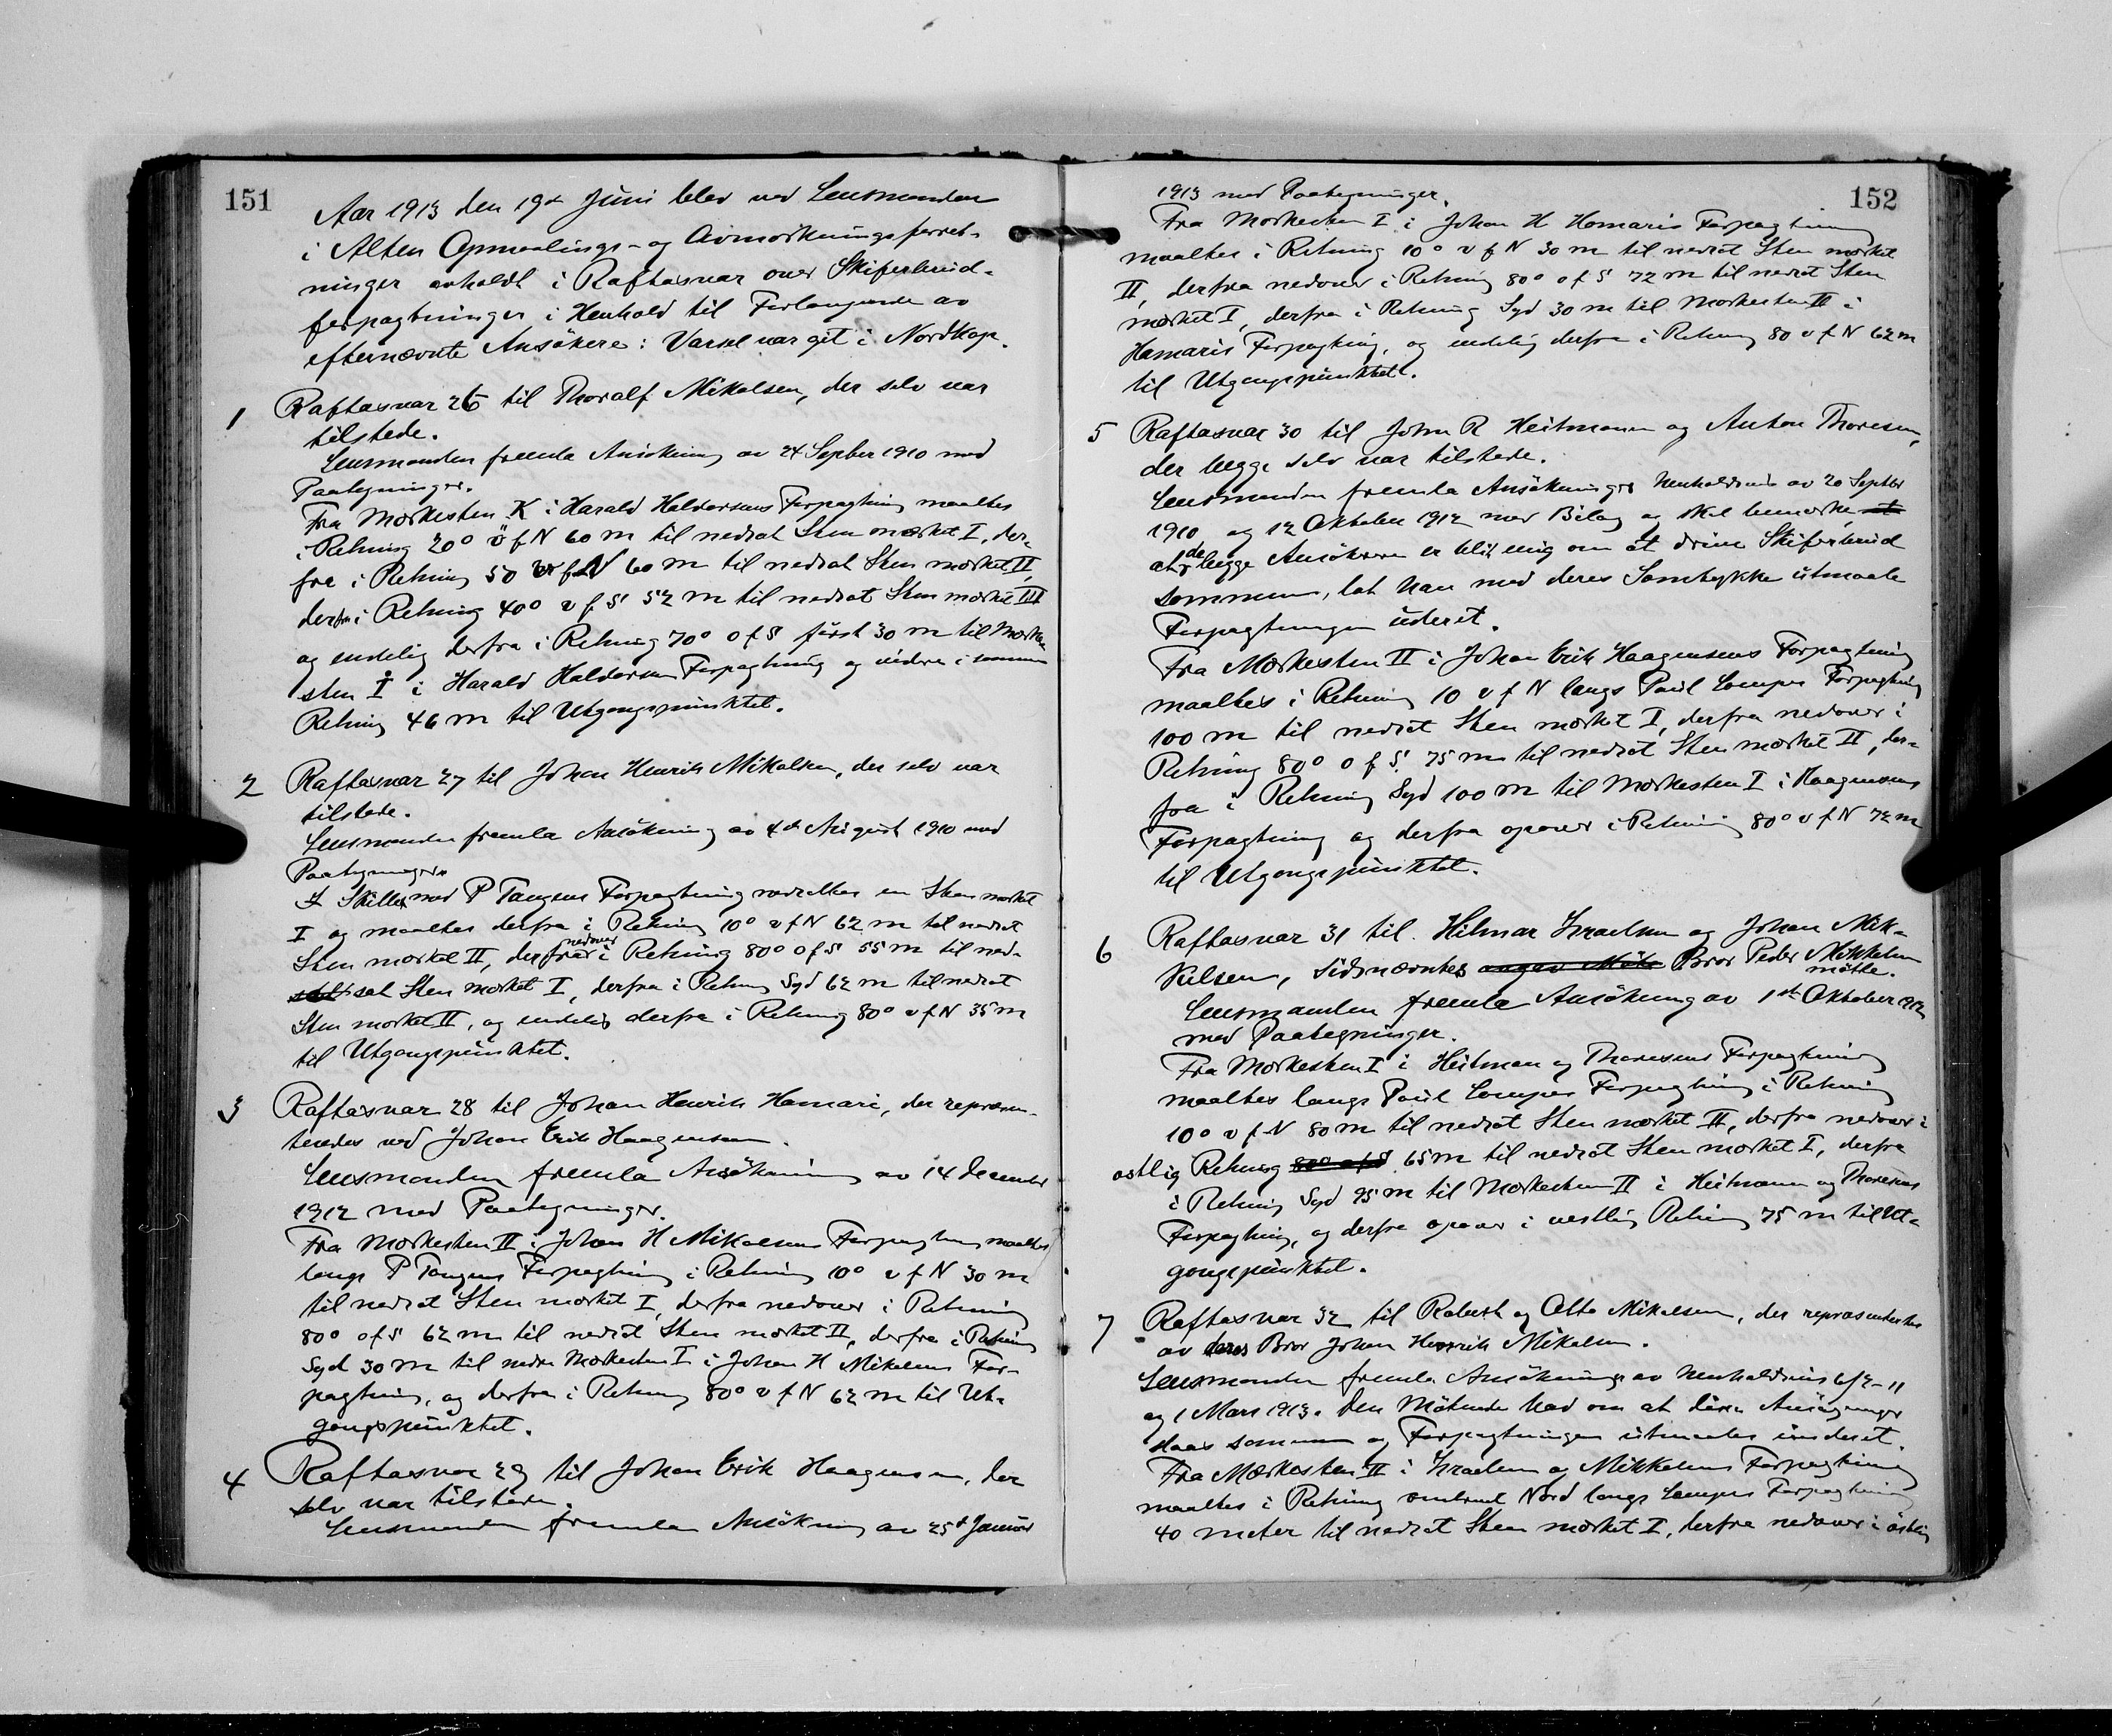 151
Aar 1913 den 19de Juni blev ved Lensmanden
i Alten Opmaalings- og Avmærkningsforret-
ninger avholdt i Raftasvar over Skiferbrud-
forpagtninger i Henhold til Forlangende av
efternævnte Ansökere: Varsel var git i Nordkap.
1 Raftasvar 26 til Thoralf Mikalsen, der selv var
tilstede.
Lensmanden fremla Ansökning av 24 September 1910 med
Paategninger.
Fra Mærkesten K i Harald Haldorsens Forpagtning maaltes
i Retning 20° ö f N 60 m til nedsat Sten mærket I, der-
fra i Retning 50 v f N 60 m til nedsat Sten mærket II,
derfra i Retning 40° v f S 52 m til nedsat Sten mærket III
og endelig derfra i Retning 70° o f S först 30 m til Mærke-
sten I i Harald Haldorsens Forpagtning og videre i samme
Retning 46 m til Utgangspunktet.
2 Raftasvar 27 til Johan Henrik Mikalsen, der selv var
tilstede.
Lensmanden fremla Ansökning av 4de August 1910 med
Paategninger.
I Skillet med P Tangens Forpagtning nedsattes en Sten mærket
I og maaltes derfra i Retning 10° v f N 62 m til nedsat
Sten mærket II, derfra nedover i Retning 80° o f S 55 m til ned-
sat Sten mærket I, derfra i Retning Syd 62 m til nedsat
Sten mærket II, og endelig derfra i Retning 80° v f N 35 m
til Utgangspunktet.
3 Raftasvar 28 til Johan Henrik Hamari, der repræsen-
teredes ved Johan Erik Haagensen.
Lensmanden fremla Ansökning av 14 December
1912 med Paategninger.
Fra Mærkesten II i Johan H Mikalsens Forpagtning maaltes
langs P Tangens Forpagtning i Retning 10° v f N 30 m
til nedsat Sten mærket I, derfra nedover i Retning
80° o f S 62 m til nedsat Sten mærket II, derfra i Retning
Syd 30 m til nedre Mærkesten I i Johan H Mikalsens For-
pagtning, og derfra i Retning 80° v f N 62 m til Ut-
gangspunktet.
4 Raftasvar 29 til Johan Erik Haagensen, der
selv var tilstede.
Lensmanden fremla Ansökning av 25de Januar
152
1913 med Paategninger.
Fra Mærkesten I i Johan H Hamaris Forpagtning
maaltes i Retning 10° v f N 30 m til nedsat Sten mærket
II, derfra nedover i Retning 80° o f S 72 m til nedsat Sten
mærket I, derfra i Retning Syd 30 m til Mærkesten II i
Hamaris Forpagtning, og endelig derfra i Retning 80 v f N 62 m
til Utgangspunktet.
5 Raftasvar 30 til John R Heitmann og Anton Thoresen,
der begge selv var tilstede.
Lensmanden fremla Ansökninger henholdsvis av 20 Septbr
1910 og 12 Oktober 1912 med Bilag og skal bemærke at
at de begge Ansökere er blit enig om at drive Skiferbrud
sammen, lot han med deres Samtykke utmaale
Forpagtningen under et.
Fra Mærkesten II i Johan Erik Haagensens Forpagtning
maaltes i Retning 10 v f N langs Paul Lampes Forpagtning
100 m til nedsat Sten mærket I, derfra nedover i
Retning 80° o f S. 75 m til nedsat Sten mærket II, der-
fra i Retning Syd 100 m til Mærkesten I i Haagensens
Forpagtning og derfra opover i Retning 80° v f N 72 m
til Utgangspunktet.
6 Raftasvar 31 til Hilmar Israelsen og Johan Mik-
kelsen, sidstnævntes Bror Peder Mikkelsen
mötte.
Lensmanden fremla Ansökning av 1ste Oktober 1912
med Paategninger.
Fra Mærkesten I i Heitman og Thoresens Forpagtning
maaltes langs Paul Lampes Forpagtning i Retning
10° v f N 80 m til nedsat Sten mærket II, derfra nedover i
østlig Retning 80° o f S 65 m til nedsat Sten mærket I, derfra
i Retning Syd 95 m til Mærkesten II i Heitmann og Thoresens
Forpagtning, og derfra opover i vestlig Retning 75 m til Ut-
gangspunktet.
7 Raftasvar 32 til Robert og Otto Mikalsen, der repræsentertes
av deres Bror Johan Henrik Mikalsen.
Lensmanden fremla Ansökninger av henholdsvis 6/2-11
og 1 Mars 1913. Den Mötende bad om at disse Ansökninger
slaas sammen og Forpagtningen utmaales under et.
Fra Mærkesten II i Israelsen og Mikkelsens Forpagtning
maaltes i Retning omtrent Nord langs Lampes Forpagtning
40 meter til nedsat Sten mærket I, derfra nedover i östlig